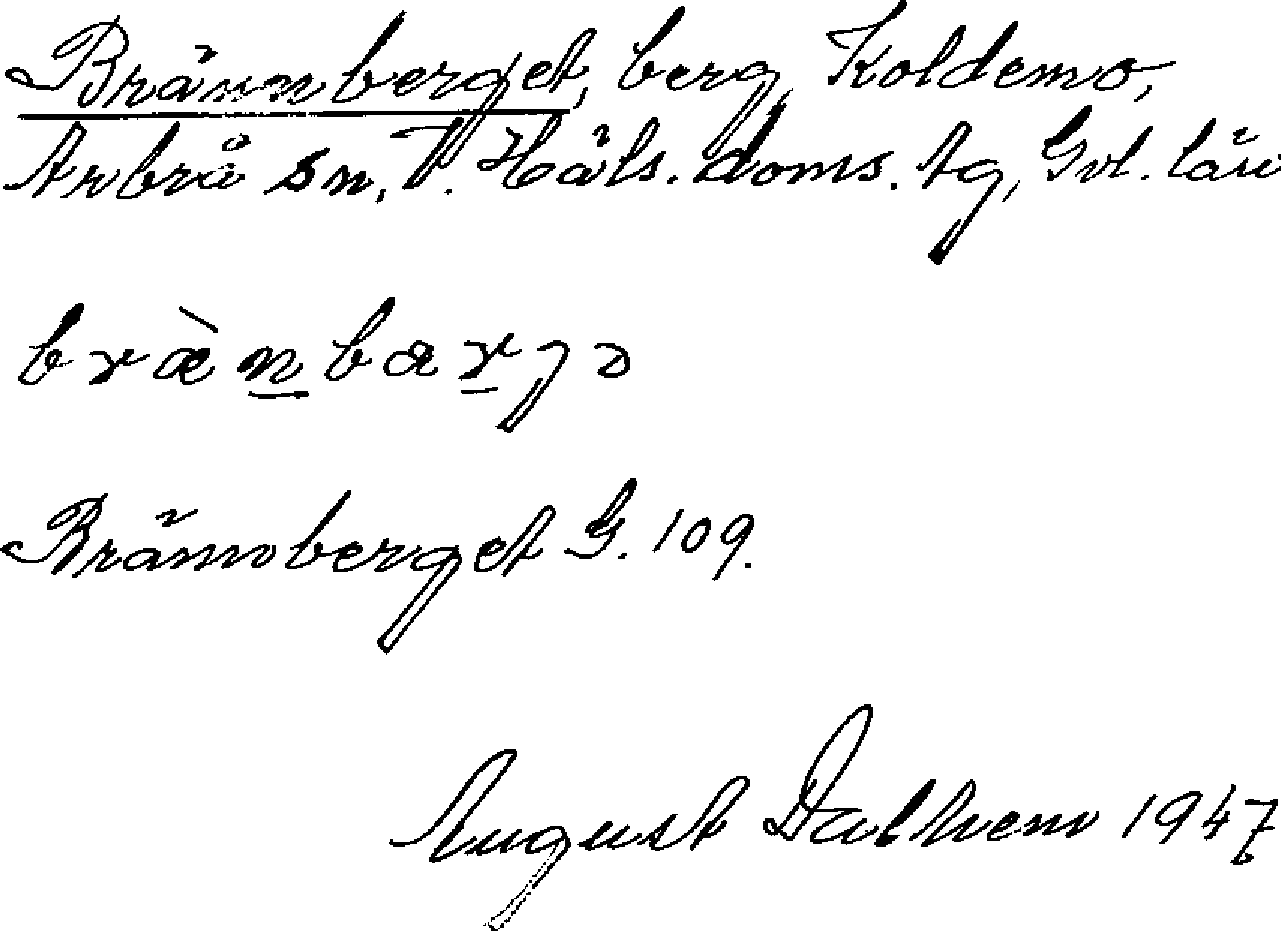 Brännberget, berg, Koldemo,
Arbrå sn, V. Häls. doms. tg, Gvl. län
bræ̀n̲bær̲jə
Brännberget G. 109.
August Dalhem 1947